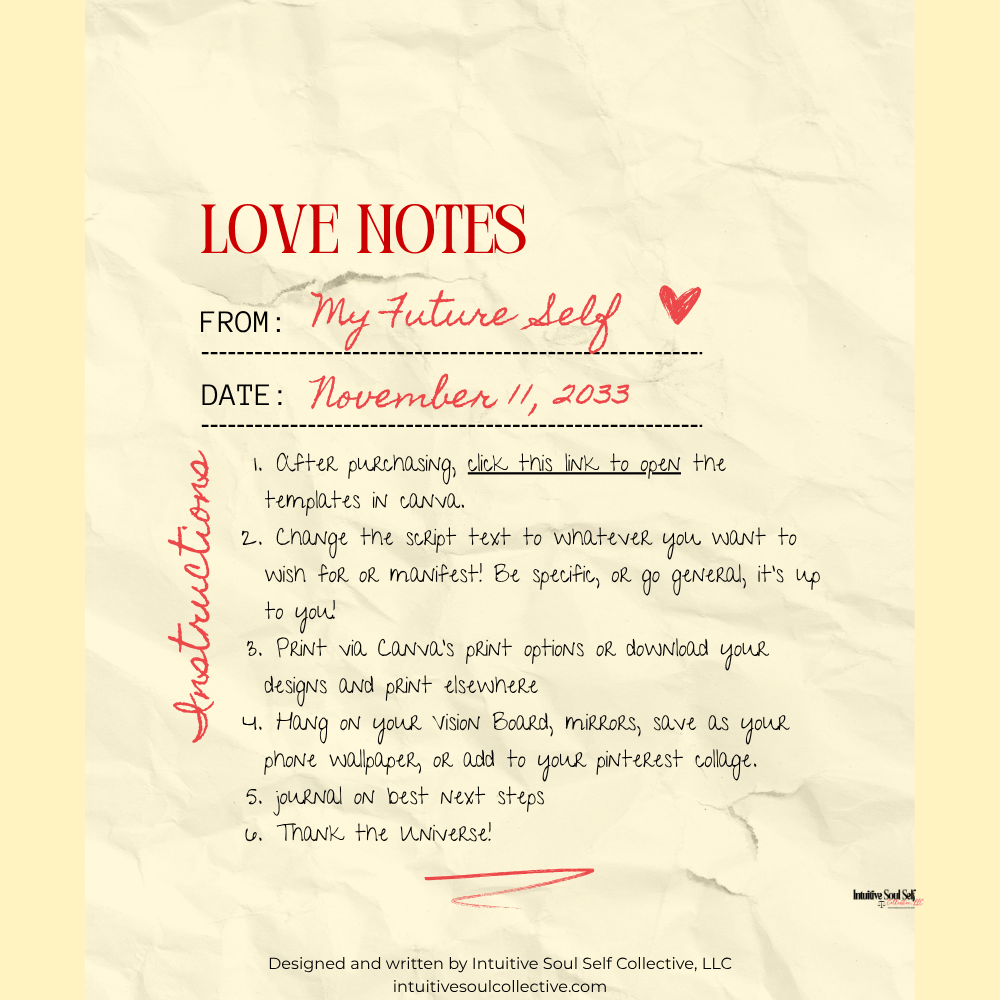 LOVE NOTES
FROM: My Future Self
DATE: November 11, 2033
Instructions
1. After purchasing, click this link to open the
templates in canva.
2. Change the script text to whatever you want to
wish for or manifest! Be specific, or go general, it's up
to you!
3. Print via Canva's print options or download your
designs and print elsewhere
4. Hang on your Vision Board, mirrors, save as your
phone wallpaper, or add to your pinterest collage.
5. journal on best next steps
6. Thank the Universe!
Intuitive Soul Self
Collective, LLC
Designed and written by Intuitive Soul Self Collective, LLC
intuitivesoulcollective.com